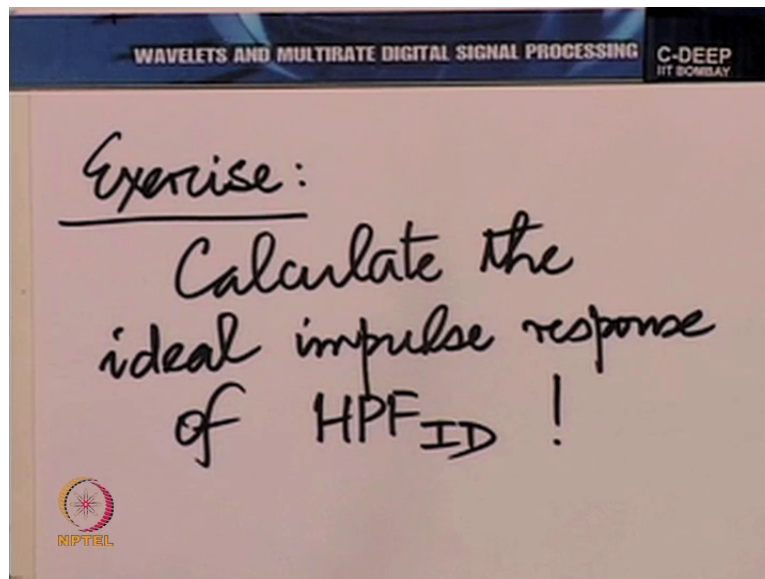 WAVELETS AND MULTIRATE DIGITAL SIGNAL PROCESSING
C-DEEP
IIT BOMBAY
Exercise:
Calculate the
ideal impulse response
of HPF_ID !
NPTEL